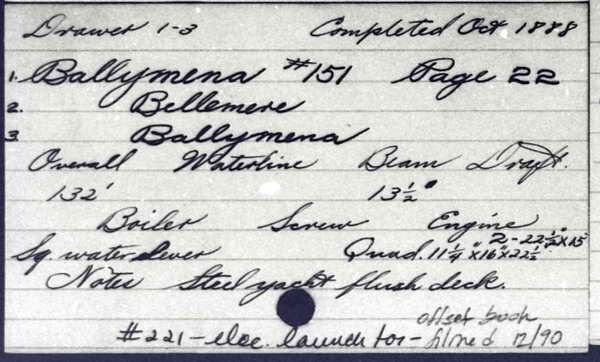 Drawer 1-3 Completed Oct 1888
1. Ballymena #151 Page 22
2. Bellemere
3. Ballymena
Overall Waterline Beam Draft.
132' 13½"
Boiler Screw Engine
Sq. water Quad. 11¼"x16"x22½" 2-22½"x15"
Notes Steel yacht flush deck.
#221-elec. launch for- offset book
filmed 12/90